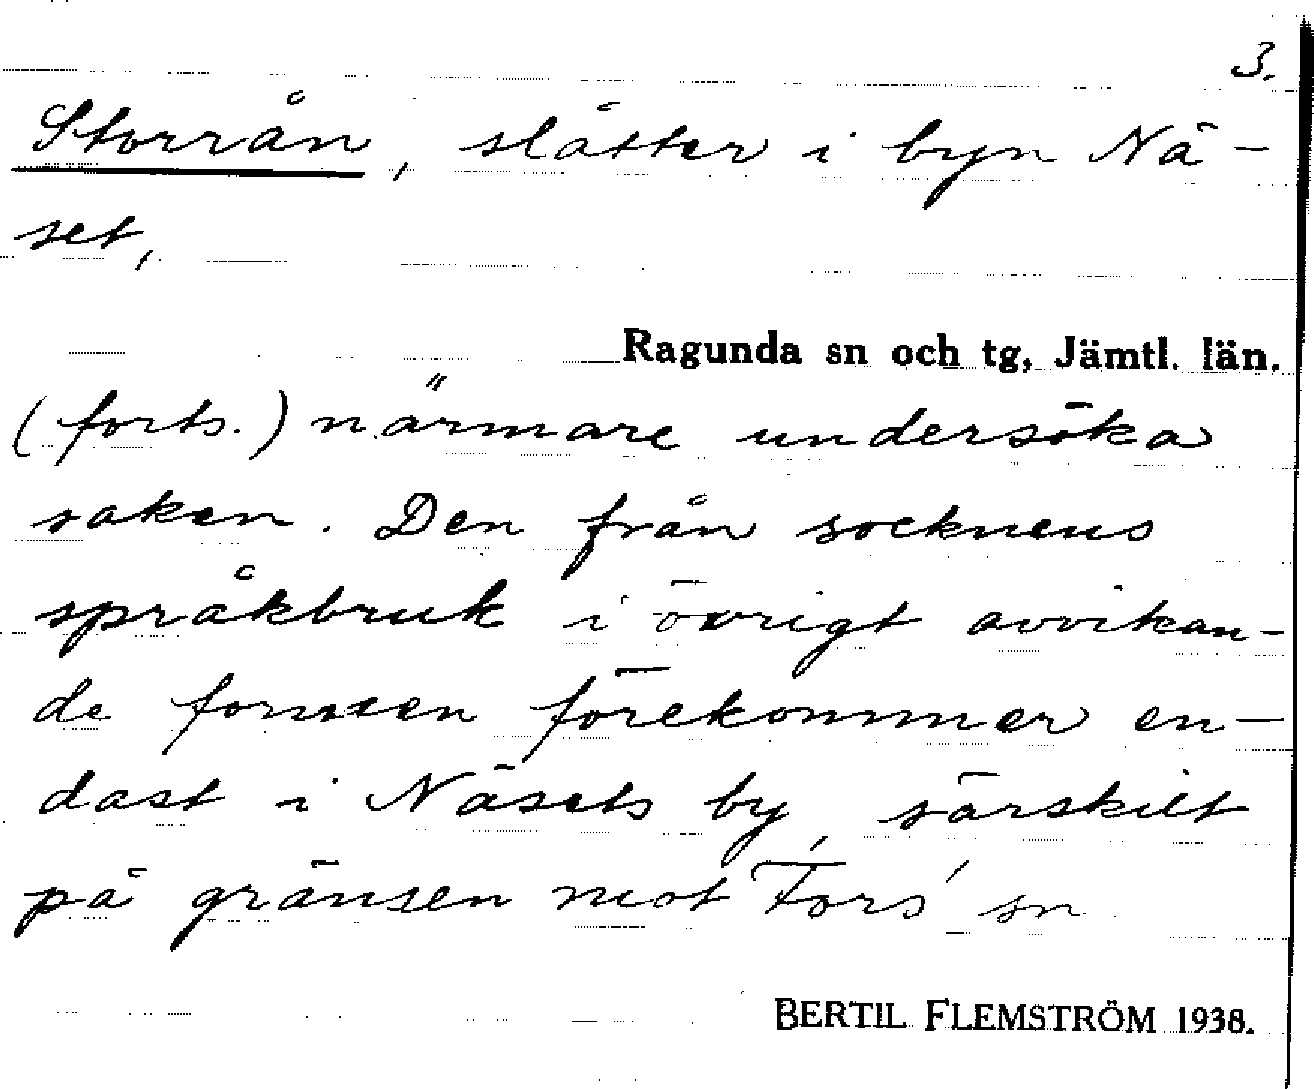 3.
Storrån, slåtter i byn Nä-
set,
Ragunda sn och tg, Jämtl. län.
(forts.) närmare undersöka
saken. Den från socknens
språkbruk i övrigt avvikan-
de formen förekommer en-
dast i Näsets by, särskilt
på gränsen mot Fors' sn
BERTIL FLEMSTRÖM 1938.